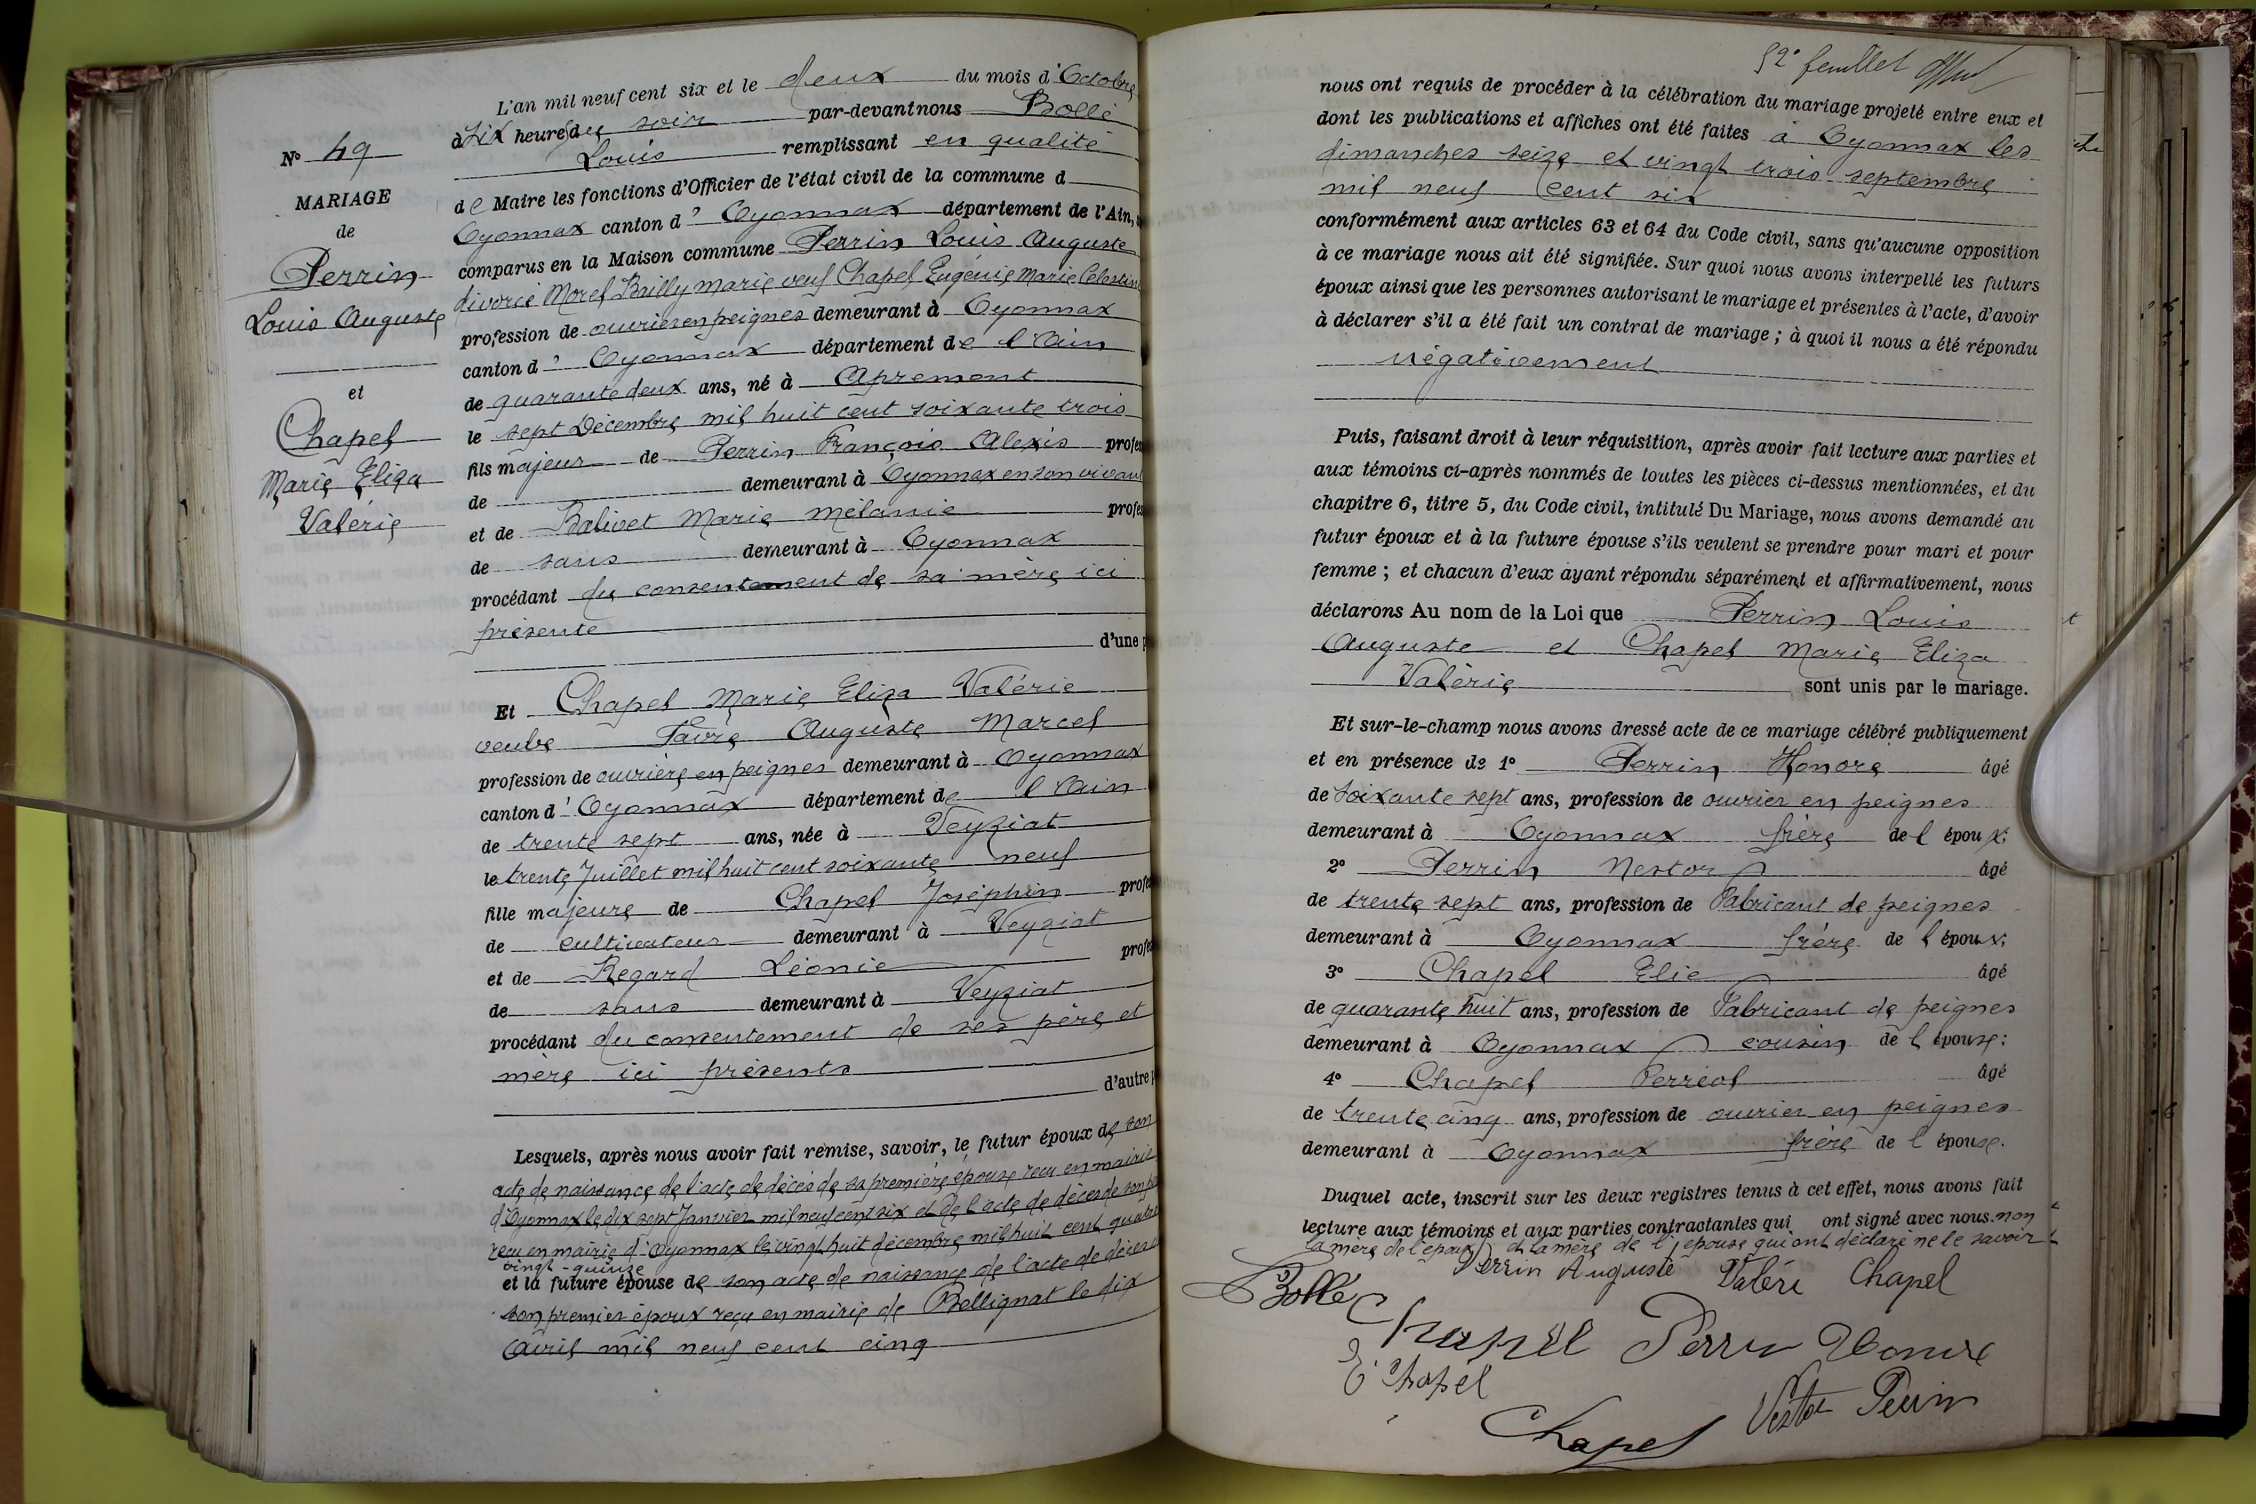 L'an mil neuf cent six et le deux du mois d'Octobre
à six heures du soir par-devant nous Bollé
Louis remplissant en qualité
de Maire les fonctions d'Officier de l'état civil de la commune d
Oyonnax canton d' Oyonnax département de l'Ain,
comparus en la Maison commune Perrin Louis Auguste
divorcé Morel Bailly marie veuf Chapel Eugénie Marie Celestin
profession de ouvrier en peignes demeurant à Oyonnax
canton d' Oyonnax département de l'Ain
de quarante deux ans, né à Apremont
le sept Décembre mil huit cent soixante trois
fils majeur de Perrin François Alexis profes
de demeurant à Oyonnax en son vivant
et de Balivet Marie mélanie profes
de sans demeurant à Oyonnax
procédant du consentement de sa mère ici
présente
d'une p
Et Chapel Marie Eliza Valérie
veuve Favre Auguste Marcel
profession de ouvrière en peignes demeurant à Oyonnax
canton d' Oyonnax département de l'Ain
de trente sept ans, née à Veyziat
le trente Juillet mil huit cent soixante neuf
fille majeure de Chapel Joséphin profes
de cultivateur demeurant à Veyziat
et de Regard Léonie profes
de sans demeurant à Veyziat
procédant du consentement de ses père et
mère ici présents
d'autre p
Lesquels, après nous avoir fait remise, savoir, le futur époux de son
acte de naissance de l'acte de décès de sa première épouse reçu en mairie
d'Oyonnax le dix sept Janvier mil neuf cent six et de l'acte de décès de son pè
reçu en mairie d'Oyonnax le vingt huit décembre mil huit cent quatre
vingt-quinze
et la future épouse de son acte de naissance de l'acte de décès d
son premier époux reçu en mairie de Bellignat le dix
Avril mil neuf cent cinq
N° 49
MARIAGE
de
Perrin
Louis Auguste
et
Chapel
Marie Eliza
Valérie
52e feuillet
nous ont requis de procéder à la célébration du mariage projeté entre eux et
dont les publications et affiches ont été faites à Oyonnax les
dimanches seize et vingt trois septembre
mil neuf cent six
conformément aux articles 63 et 64 du Code civil, sans qu'aucune opposition
à ce mariage nous ait été signifiée. Sur quoi nous avons interpellé les futurs
époux ainsi que les personnes autorisant le mariage et présentes à l'acte, d'avoir
à déclarer s'il a été fait un contrat de mariage ; à quoi il nous a été répondu
négativement
Puis, faisant droit à leur réquisition, après avoir fait lecture aux parties et
aux témoins ci-après nommés de toutes les pièces ci-dessus mentionnées, et du
chapitre 6, titre 5, du Code civil, intitulé Du Mariage, nous avons demandé au
futur époux et à la future épouse s'ils veulent se prendre pour mari et pour
femme ; et chacun d'eux ayant répondu séparément et affirmativement, nous
déclarons Au nom de la Loi que Perrin Louis
Auguste et Chapel Marie Eliza
Valérie sont unis par le mariage.
Et sur-le-champ nous avons dressé acte de ce mariage célébré publiquement
et en présence de 1° Perrin Honoré âgé
de soixante sept ans, profession de ouvrier en peignes
demeurant à Oyonnax frère de l'époux;
2° Perrin Nestor âgé
de trente sept ans, profession de Fabricant de peignes
demeurant à Oyonnax frère de l'époux;
3° Chapel Elie âgé
de quarante huit ans, profession de Fabricant de peignes
demeurant à Oyonnax cousin de l'épouse;
4° Chapel Ferréol âgé
de trente cinq ans, profession de ouvrier en peignes
demeurant à Oyonnax frère de l'épouse.
Duquel acte, inscrit sur les deux registres tenus à cet effet, nous avons fait
lecture aux témoins et aux parties contractantes qui ont signé avec nous. non
la mère de l'époux et la mère de l'épouse qui ont déclaré ne le savoir
Perrin Auguste Valéri Chapel
Bollé
Chapel Perrin Honoré
E Chapel
Chapel Nestor Perrin